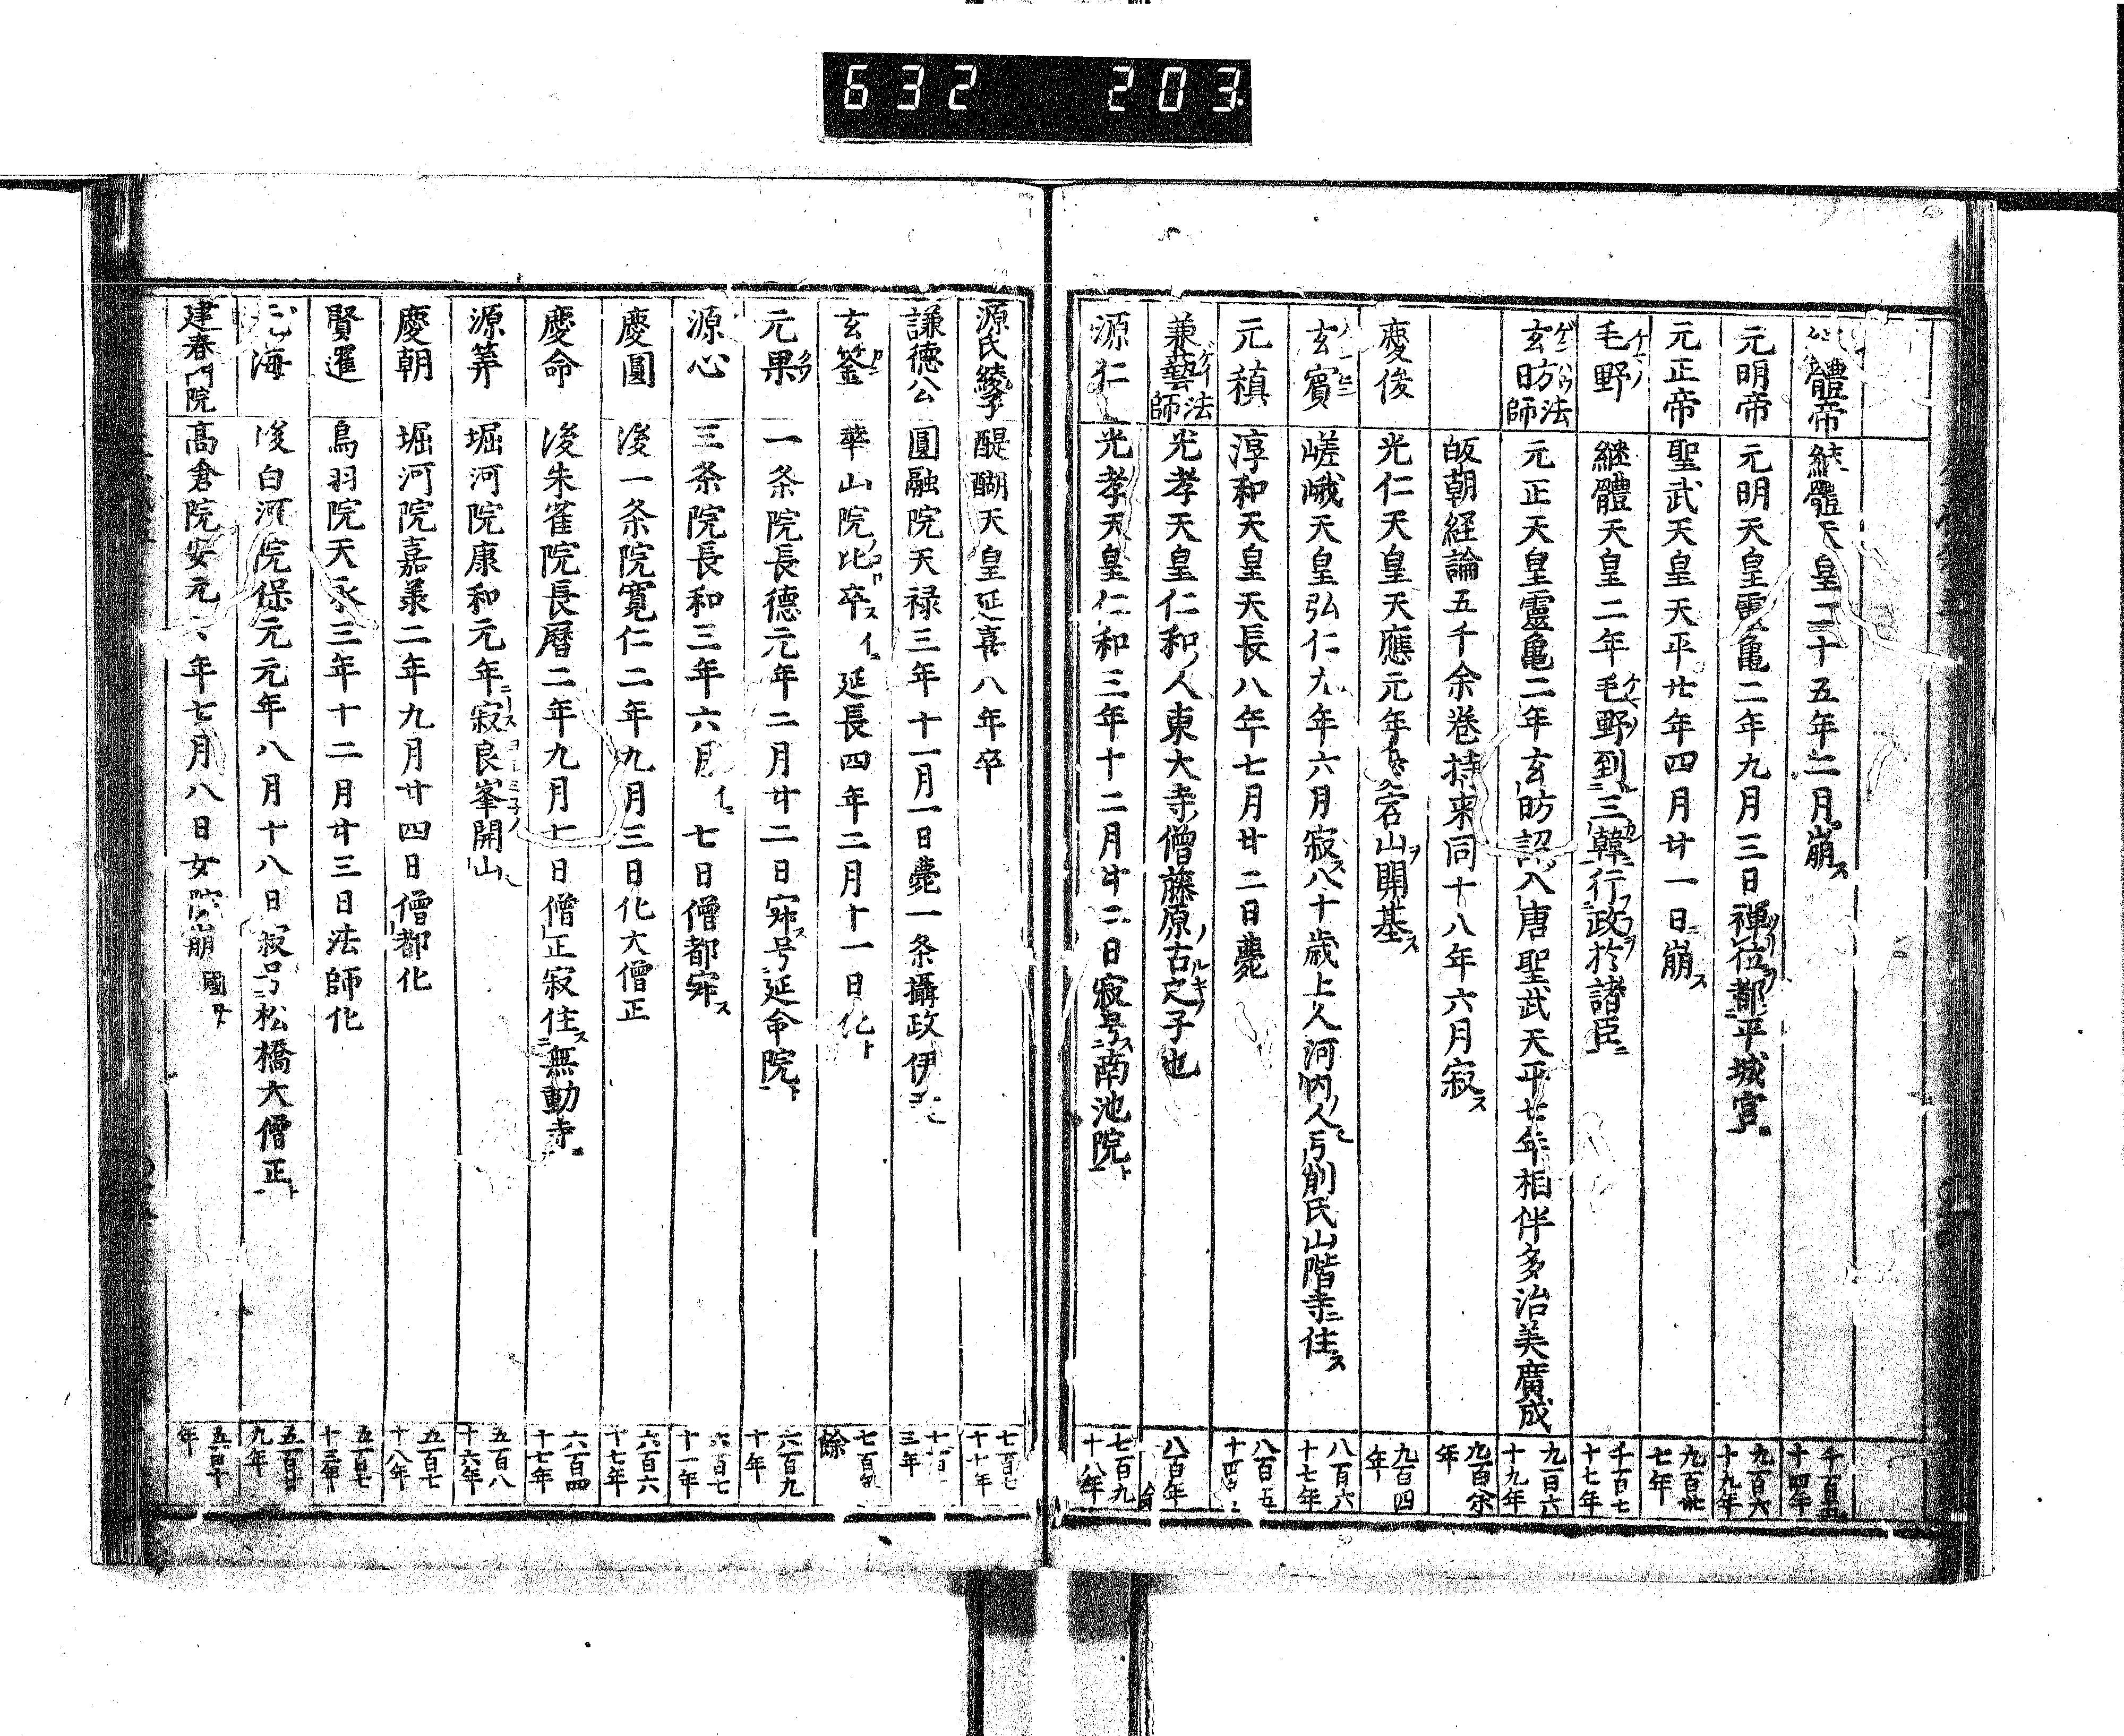 632 203
體帝 継體天皇二十五年二月崩ス 千百五十四年
元明帝 元明天皇霊亀二年九月三日禪位都平城宮 九百六十九年
元正帝 聖武天皇天平廿年四月廿一日崩ス 九百卅七年
毛野 継體天皇二年毛野到三韓行政於諸臣 千百七十七年
玄昉法師 元正天皇靈亀二年玄昉詔入唐聖武天平七年相伴多治美廣成 九百六十九年
皈朝経論五千余巻持来同十八年六月寂ス 九百余年
慶俊 光仁天皇天應元年宕山開基ス 九百四年
玄賓 嵯峨天皇弘仁九年六月寂ス八十歳上人河内人弓削氏山階寺住ス 八百六十七年
元稹 淳和天皇天長八年七月廿二日薨 八百五十四
兼藝法師 光孝天皇仁和ノ人東大寺僧藤原ノ古之子也 八百年
源仁 光孝天皇仁和三年十二月廿二日寂号ス南池院ト 七百九十八年
源氏綾子 醍醐天皇延喜八年卒 七百七十七年
謙徳公 圓融院天禄三年十一月一日薨一条攝政伊尹 三年
玄鉴 華山院ノ比卒スイニ延長四年二月十一日化ト 七百餘
元果 一条院長徳元年二月廿二日寂ス号延命院ト 六百九十年
源心 三条院長和三年六月イニ七日僧都寂ス 六百七十一年
慶圓 後一条院寛仁二年九月三日化大僧正 六百六十七年
慶命 後朱雀院長暦二年九月七日僧正寂住ス無動寺ニ 六百四十七年
源筭 堀河院康和元年ニ寂ス良峯開山 五百八十六年
慶朝 堀河院嘉承二年九月廿四日僧都化 五百七十八年
賢暹 鳥羽院天永三年十二月廿三日法師化 五百七十三年
海 後白河院保元元年八月十八日寂号松橋大僧正ト 五百廿九年
建春門院 高倉院安元二年七月八日女院崩 五百十年